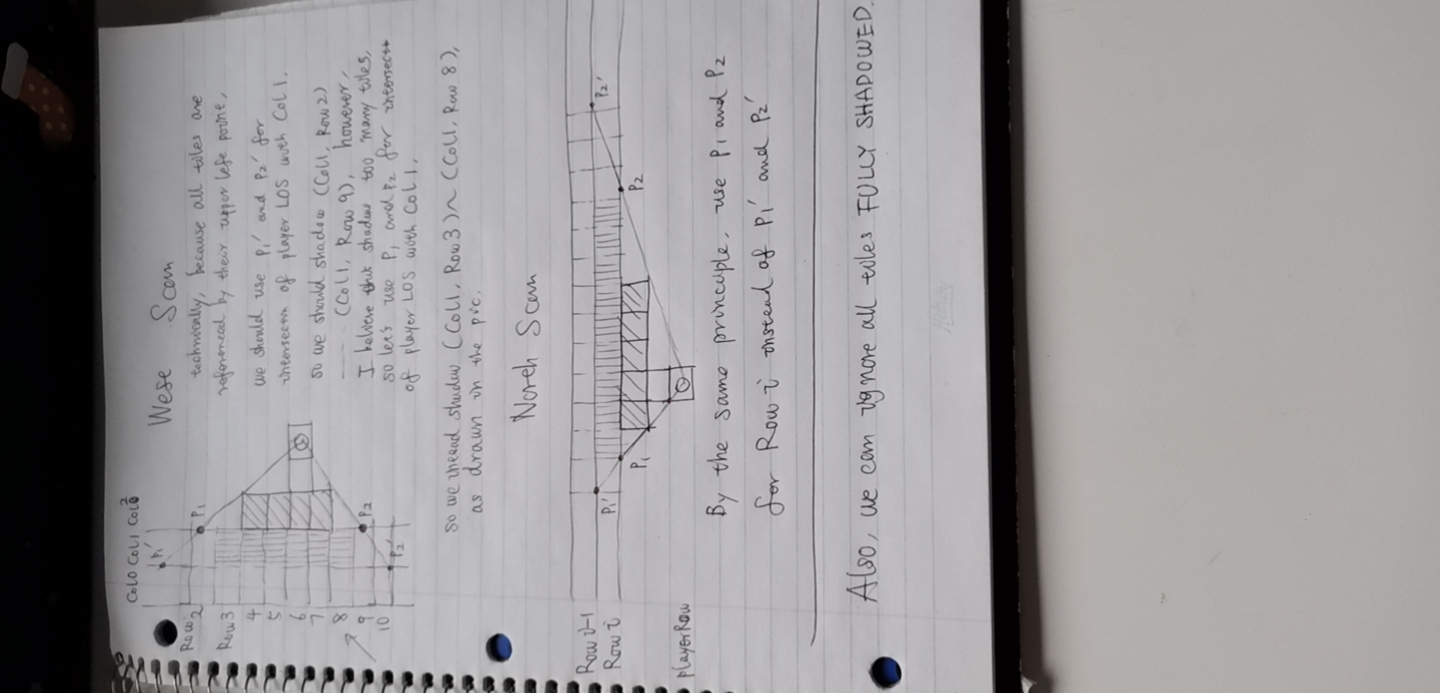 West Scan
Col0 Col1 Col2
P1'
P1
P2
P2'
Row 2
Row 3
4
5
6
7
8
9
10
technically, because all tiles are
referenced by their upper left point,
we should use P1' and P2' for
intersection of player LOS with Col 1.
So we should shadow (Col1, Row2)
(Col1, Row 9), however,
I believe that shadow too many tiles,
so let's use P1 and P2 for intersect
of player LOS with Col 1,
so we instead shadow (Col1, Row3) ~ (Col1, Row 8),
as drawn in the pic.
North Scan
Row i-1
Row i
playerRow
P1'
P1
P2
P2'
By the same principle, use P1 and P2
for Row i instead of P1' and P2'
Also, we can ignore all tiles FULLY SHADOWED.